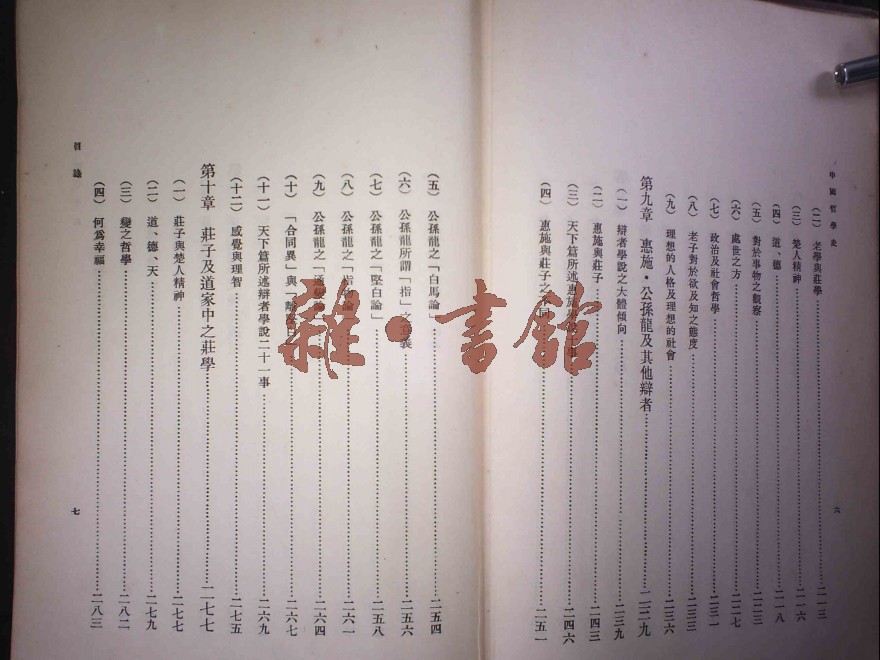 中國哲學史
(二) 老學與莊學 二一三
(三) 楚人精神 二一六
(四) 道、德 二一八
(五) 對於事物之觀察 二二三
(六) 處世之方 二二七
(七) 政治及社會哲學 二三一
(八) 老子對於欲及知之態度 二三三
(九) 理想的人格及理想的社會 二三六
第九章 惠施・公孫龍及其他辯者 二三九
(一) 辯者學說之大體傾向 二三九
(二) 惠施與莊子 二四三
(三) 天下篇所述惠施學說十事 二四六
(四) 惠施與莊子之不同 二五一
六
目錄
(五) 公孫龍之「白馬論」 二五四
(六) 公孫龍所謂「指」之意義 二五六
(七) 公孫龍之「堅白論」 二五八
(八) 公孫龍之「指物論」 二六一
(九) 公孫龍之「通變論」 二六四
(十) 「合同異」與「離堅白」 二六七
(十一) 天下篇所述辯者學說二十一事 二六九
(十二) 感覺與理智 二七五
第十章 莊子及道家中之莊學 二七七
(一) 莊子與楚人精神 二七七
(二) 道、德、天 二七九
(三) 變之哲學 二八二
(四) 何爲幸福 二八三
七
雜・書館